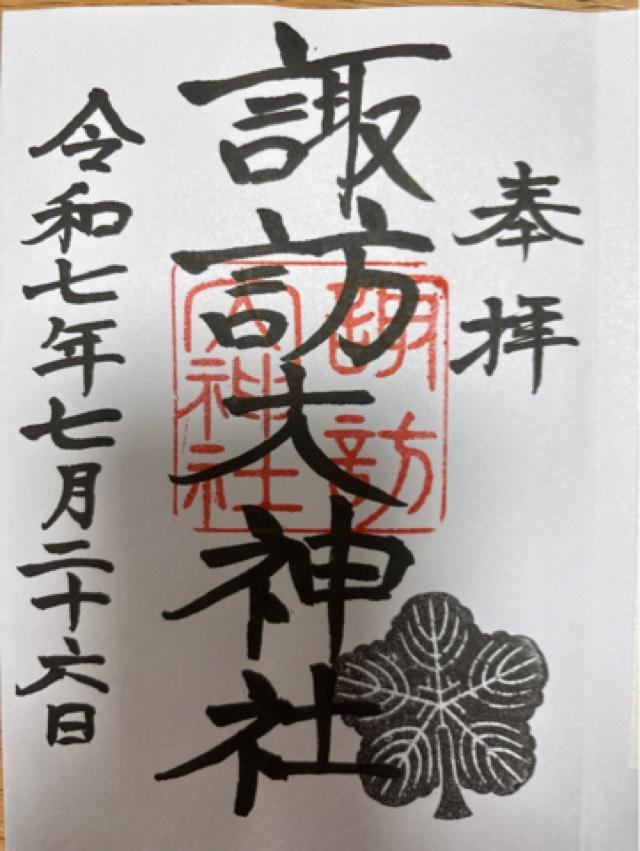 奉拝
諏訪大神社
諏訪
大神社
令和七年七月二十六日